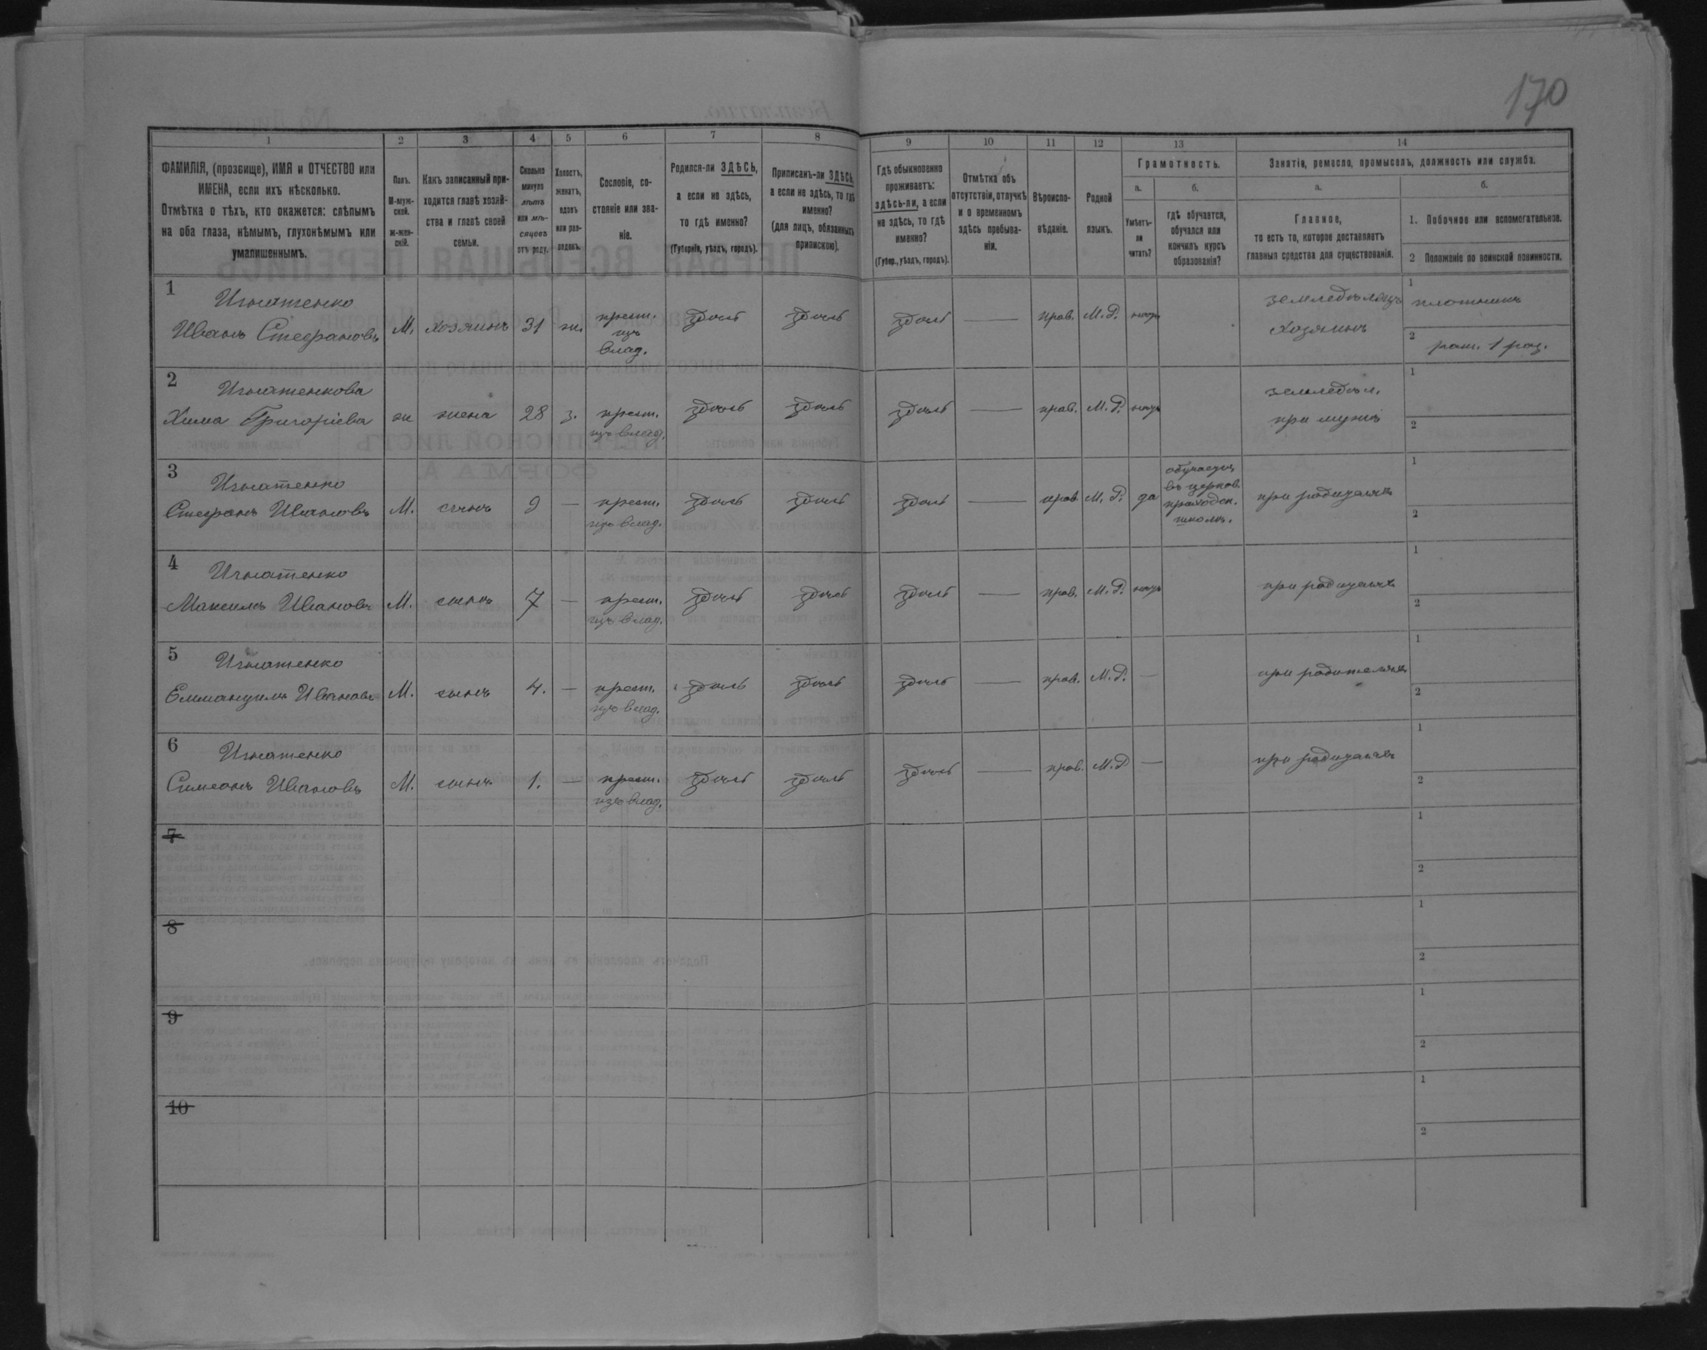 170
1 2 3 4 5 6 7 8 9 10 11 12 13 14
ФАМИЛІЯ, (прозвище), ИМЯ и ОТЧЕСТВО или
ИМЕНА, если ихъ нѣсколько.
Отмѣтка о тѣхъ, кто окажется: слѣпымъ
на оба глаза, нѣмымъ, глухонѣмымъ или
умалишеннымъ.
Полъ.
М-муж-
ской.
ж-жен-
скій.
Какъ записанный при-
ходится главѣ хозяй-
ства и главѣ своей
семьи.
Сколько
минуло
лѣтъ
или мѣ-
сяцевъ
отъ роду.
Холостъ,
женатъ,
вдовъ
или раз-
веденъ.
Сословіе, со-
стояніе или зва-
ніе.
Родился-ли ЗДѢСЬ,
а если не здѣсь,
то гдѣ именно?
(Губернія, уѣздъ, городъ).
Приписанъ-ли ЗДѢСЬ,
а если не здѣсь, то гдѣ
именно?
(для лицъ, обязанныхъ
припискою).
Гдѣ обыкновенно
проживаетъ:
здѣсь-ли, а если
не здѣсь, то гдѣ
именно?
(Губер., уѣздъ, городъ).
Отмѣтка объ
отсутствіи, отлучкѣ
и о временномъ
здѣсь пребыва-
ніи.
Вѣроиспо-
вѣданіе.
Родной
языкъ.
Грамотность.
а.
Умѣетъ-
ли
читать?
б.
гдѣ обучается,
обучался или
кончилъ курсъ
образованія?
Занятіе, ремесло, промыселъ, должность или служба.
а.
Главное,
то есть то, которое доставляетъ
главныя средства для существованія.
б.
1. Побочное или вспомогательное.
2 Положеніе по воинской повинности.
1
Игнатенко
Иванъ Стефановъ М. хозяинъ 31 ж. крест.
изъ
влад. здѣсь здѣсь здѣсь — прав. М.Р. нѣтъ
земледѣлецъ
хозяинъ
1 плотникъ
2 рат. 1 раз.
2
Игнатенкова
Хима Григорiева ж жена 28 з. крест.
изъ влад. здѣсь здѣсь здѣсь — прав. М.Р. нѣтъ
земледѣл.
при мужѣ
1
2
3
Игнатенко
Стефанъ Ивановъ М. сынъ 9 — крест.
изъ влад. здѣсь здѣсь здѣсь — прав. М.Р. да
обучается
въ церков.
приходск.
школѣ.
при родителяхъ
1
2
4
Игнатенко
Максимъ Ивановъ М. сынъ 7 — крест.
изъ влад. здѣсь здѣсь здѣсь — прав. М.Р. нѣтъ при родителяхъ
1
2
5
Игнатенко
Еммануилъ Ивановъ М. сынъ 4. — крест.
изъ влад. здѣсь здѣсь здѣсь — прав. М.Р. — при родителяхъ
1
2
6
Игнатенко
Симеонъ Ивановъ М. сынъ 1. — крест.
изъ влад. здѣсь здѣсь здѣсь — прав. М.Р — при родителяхъ
1
2
7
1
2
8
1
2
9
1
2
10
1
2